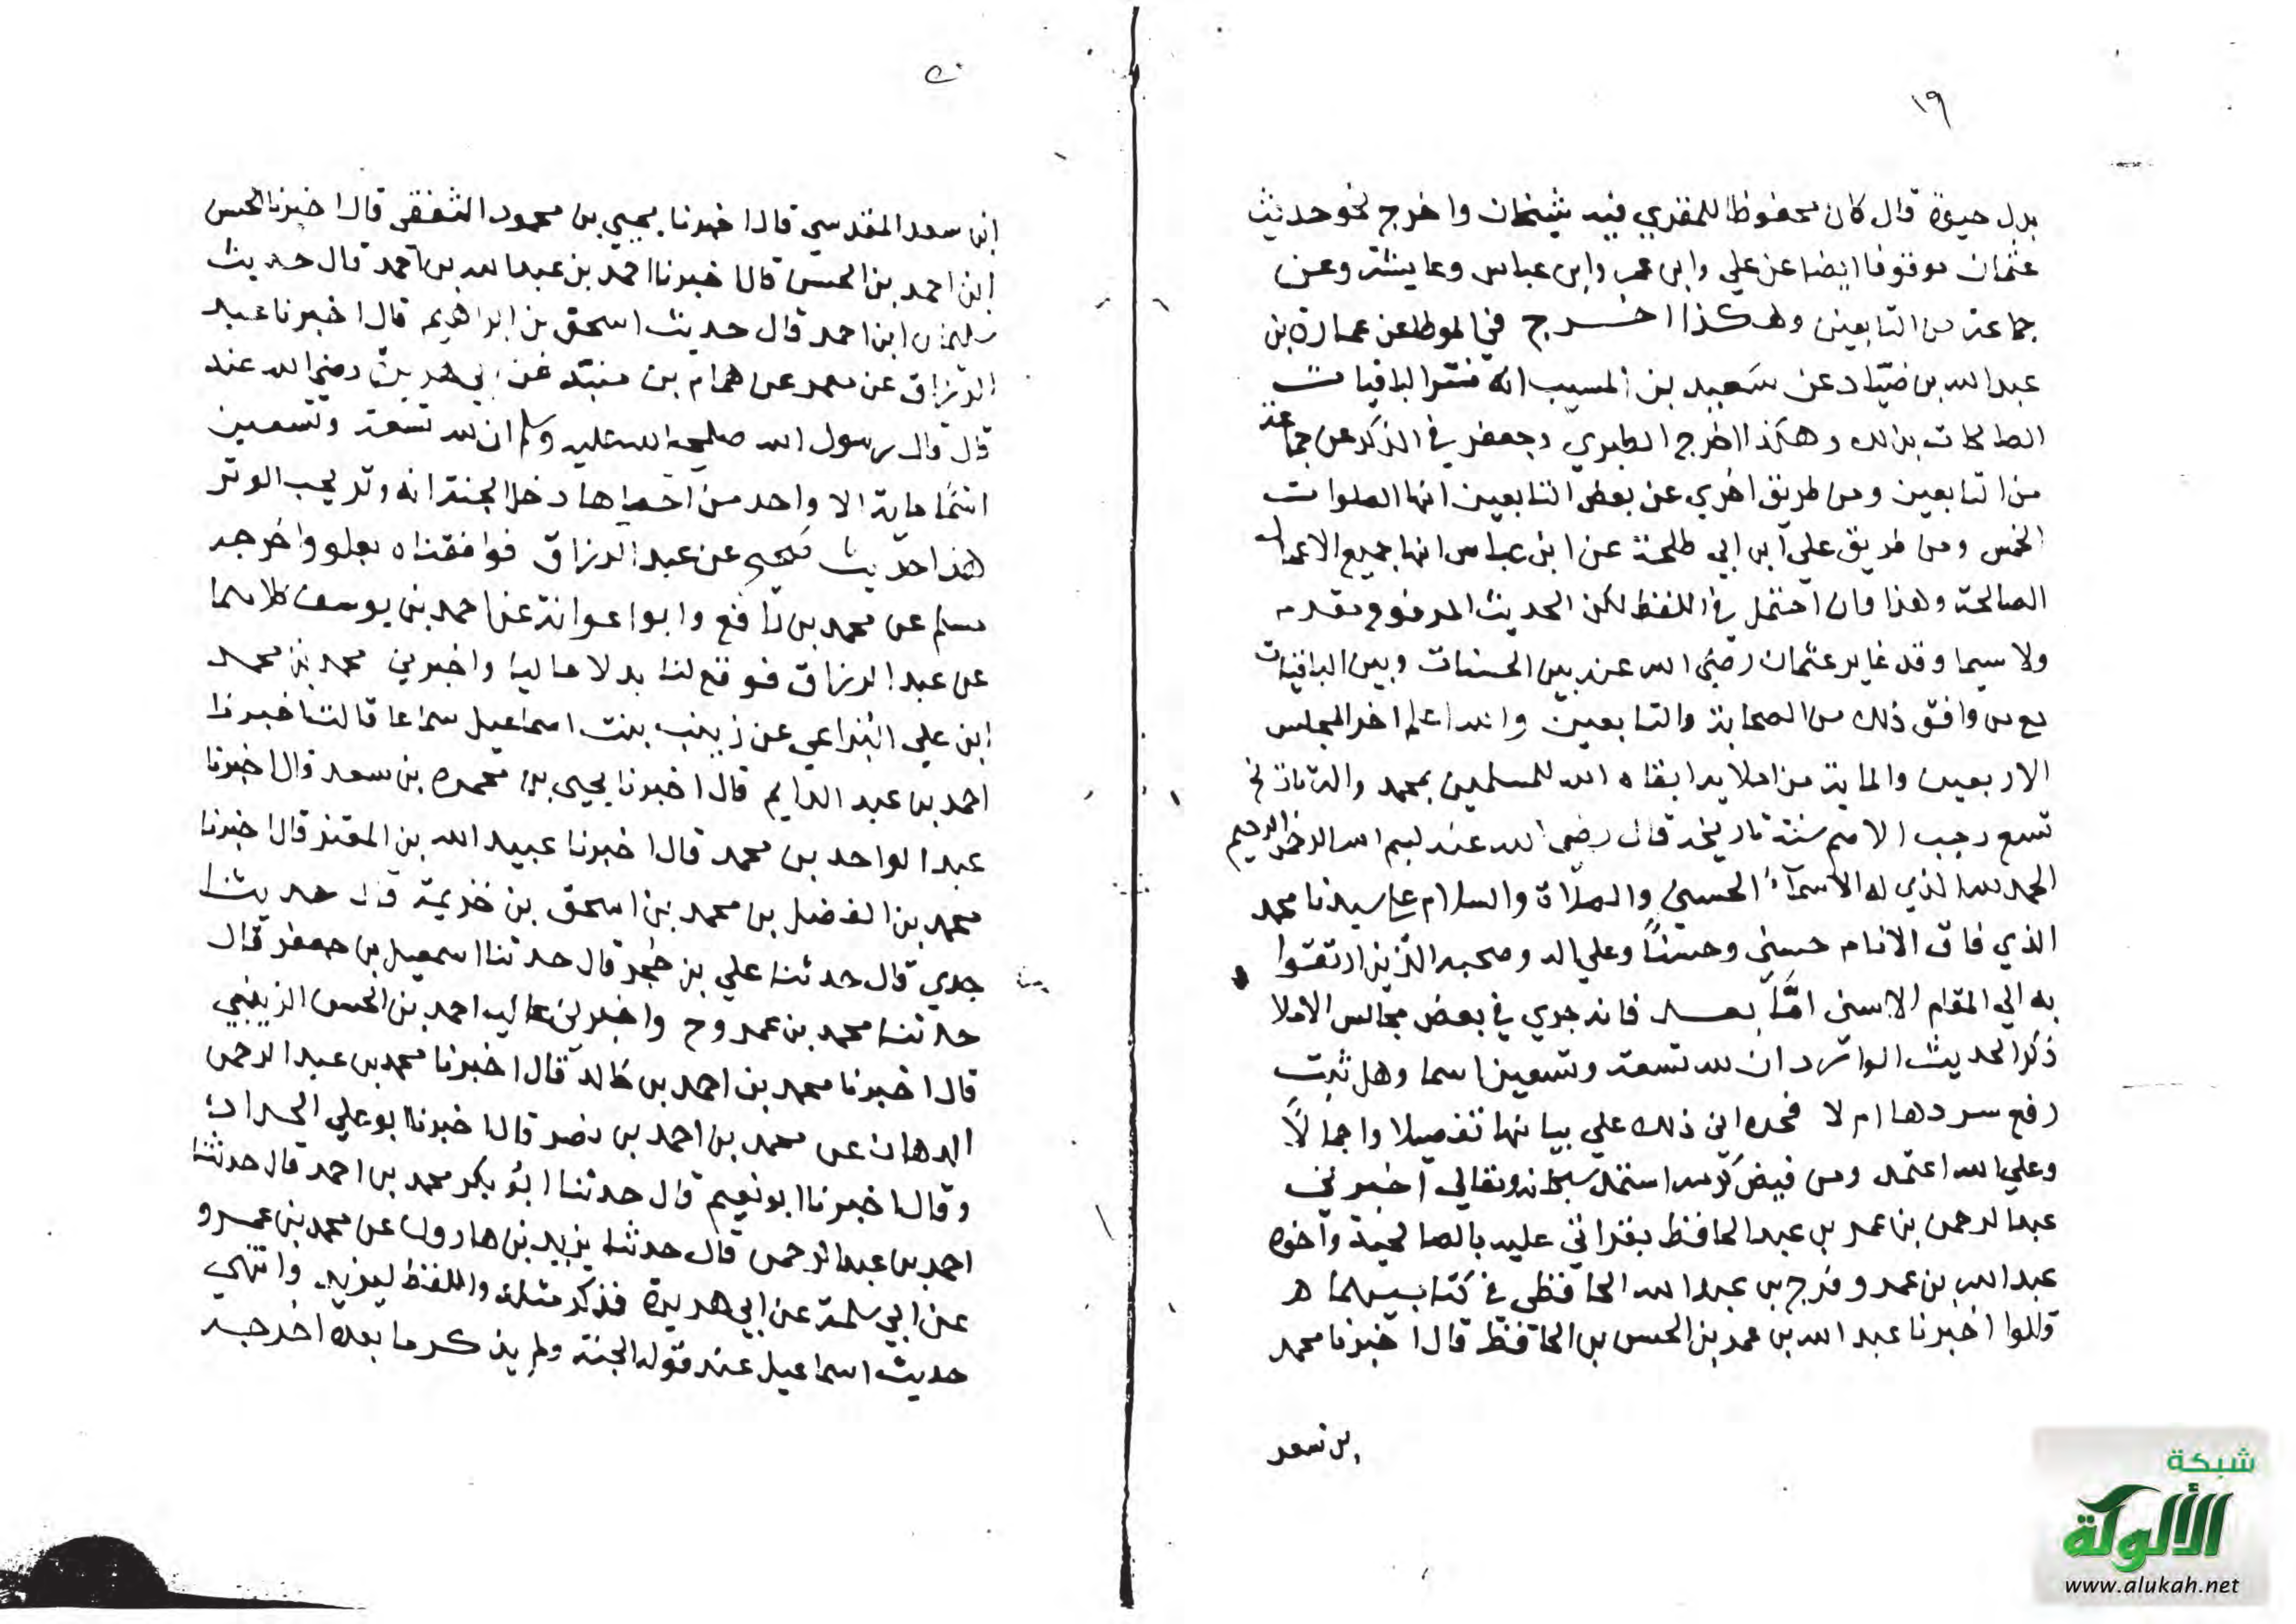 ١٩
بدل حيوة قال كان محفوظا للمقري فيه شيخان واخرج نحو حديث
عثمان موقوفا ايضا عن علي وابن عمر وابن عباس وعايشة وعن
جماعة من التابعين وهكذا اخرج في الموطا عن عمارة بن
عبد الله بن صياد عن سعيد بن المسيب انه فسر الباقيات
الصالحات بذلك وهكذا اخرج الطبري وجعفر في الذكر عن جماعة
من التابعين ومن طريق اخري عن بعض التابعين انها الصلوات
الخمس ومن طريق علي ابن ابي طلحة عن ابن عباس انها جميع الاعمال
الصالحة وهذا وان احتمل في اللفظ لكن الحديث المرفوع مقدم
ولا سيما وقد غاير عثمان رضي الله عنه بين الحسنات وبين الباقيات
مع من وافق ذلك من الصحابة والتابعين والله اعلم اخر المجلس
الاربعين والماية من املايه ابقاه الله للمسلمين بمحمد واله تاريخ
تسع رجب الاصم سنة تاريخه قال رضي الله عنه بسم الله الرحمن الرحيم
الحمد لله الذي له الاسمآء الحسني والصلاة والسلام علي سيدنا محمد
الذي فاق الانام حسني وحسنا وعلي اله وصحبه الذين ارتقوا
به الي المقام الاسني امّا بعد فانه جري في بعض مجالس الاملا
ذكر الحديث الوارد ان لله تسعة وتسعين اسما وهل ثبت
رفع سردها ام لا فحداني ذلك علي بيانها تفصيلا واجمالاً
وعلي الله اعتمد ومن فيض كرمه استمد سبحانه وتعالي اخبرني
عبد الرحمن بن عمر بن عبد الحافظ بقراتي عليه بالصالحية واخوه
عبد الله بن عمر وفرج بن عبد الله الحافظي في كتابيهما
قالوا اخبرنا عبد الله بن الحسن بن الحافظ قال اخبرنا محمد
بن سعد
٢٠
ابن سعد المقدسي قال اخبرنا يحيي بن محمود الثقفي قال اخبرنا الحسن
ابن احمد بن الحسن قال اخبرنا احمد بن عبد الله بن احمد قال حديث
سليمان ابن احمد قال حديث اسحق بن ابراهيم قال اخبرنا عبد
الرزاق عن معمر عن همام بن منبّه عن ابي هريرة رضي الله عنه
قال قال رسول الله صلي الله عليه وسلم ان لله تسعة وتسعين
اسمًا ماية الا واحد من احصاها دخل الجنة انه وتر يحب الوتر
هذا حديث صحيح عن عبد الرزاق فوافقناه بعلو واخرجه
مسلم عن محمد بن رافع وابوا عوانة عن احمد بن يوسف كلاهما
عن عبد الرزاق فوقع لنا بدلا عاليا واخبرني محمد بن محمد
ابن علي البزاعي عن زينب بنت اسماعيل سماعا قالت اخبرنا
احمد بن عبد الدايم قال اخبرنا يحيي بن محمود بن سعد قال اخبرنا
عبد الواحد بن محمد قال اخبرنا عبيد الله بن المعتز قال اخبرنا
محمد بن الفضل بن محمد بن اسحق بن خزيمة قال حديثنا
جدي قال حدثنا علي بن حجر قال حدثنا اسمعيل بن جعفر قال
حدثنا محمد بن عمر وح واخبرني عاليه احمد بن الحسن الزينبي
قال اخبرنا محمد بن احمد بن خالد قال اخبرنا محمد بن عبد الرحمن
الدهان عن محمد بن احمد بن نصر قال اخبرنا ابو علي الحداد
وقال اخبرنا ابو نعيم قال حدثنا ابو بكر محمد بن احمد قال حدثنا
احمد بن عبد الرحمن قال حدثنا يزيد بن هارون عن محمد بن عمرو
عن ابي سلمة عن ابي هريرة فذكر مثله واللفظ ليزيد وانتهي
حديث اسماعيل عند قوله الجنة ولم يذكر ما بعده اخرجه
شبكة
الألوكة
www.alukah.net